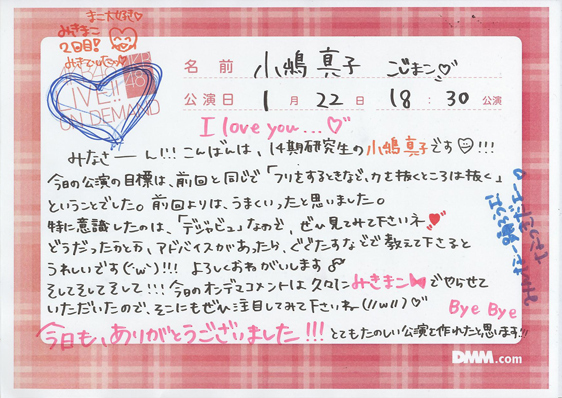 まこ大好き♡
みきまこ
2日目!
LIVE!!
ON DEMAND
名前 小嶋真子 こじまこ♡
公演日 1月22日 18:30公演
I love you...♡
みなさーん!!! こんばんは、14期研究生の小嶋真子です♡!!!
今日の公演の目標は、前回と同じで「フリをするときなど、力を抜くところは抜く」
ということでした。前回よりは、うまくいったと思いました。
特に意識したのは、「デジャビュ」なので、ぜひ見てみて下さいネ♥
どうだったかとか、アドバイスがあったら、ぐぐたすなどで教えて下さると
うれしいです(´ω`)!!! よろしくおねがいします
そしてそしてそして!!! 今日のオンデマコメントは久々にみきまこでやらせて
いただいたので、そこにもぜひ注目してみて下さいねー(//w//)♡
Bye Bye
今日も、ありがとうございました!!!
とてもたのしい公演を作れたと思います!!
DMM.com